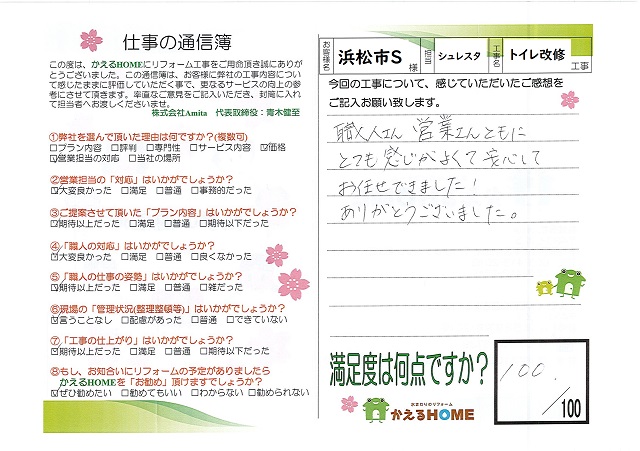 仕事の通信簿
この度は、かえるHOMEにリフォーム工事をご用命頂き誠にありが
とうございました。この通信簿は、お客様に弊社の工事内容につい
て感じたままに評価していただく事で、更なるサービスの向上の参
考にさせて頂きます。率直なご意見をご記入いただき、封筒に入れ
て担当者へお渡しくださいませ。
株式会社Amita 代表取締役：青木健至
①弊社を選んで頂いた理由は何ですか？(複数可)
□プラン内容 □評判 □専門性 □サービス内容 ☑価格
☑営業担当の対応 □当社の場所
②営業担当の「対応」はいかがでしょうか？
☑大変良かった □満足 □普通 □事務的だった
③ご提案させて頂いた「プラン内容」はいかがでしょうか？
☑期待以上だった □満足 □普通 □期待以下だった
④「職人の対応」はいかがでしょうか？
☑大変良かった □満足 □普通 □良くなかった
⑤「職人の仕事の姿勢」はいかがでしょうか？
☑期待以上だった □満足 □普通 □雑だった
⑥現場の「管理状況(整理整頓等)」はいかがでしょうか？
☑言うことなし □配慮があった □普通 □できていない
⑦「工事の仕上がり」はいかがでしょうか？
☑期待以上だった □満足 □普通 □期待以下だった
⑧もし、お知合いにリフォームの予定がありましたら
かえるHOMEを「お勧め」頂けますでしょうか？
☑ぜひ勧めたい □勧めてもいい □わからない □勧められない
お客様名 浜松市S 様 担当 シュレスタ 工事名 トイレ改修 工事
今回の工事について、感じていただいたご感想を
ご記入お願い致します。
職人さん 営業さんともに
とても感じがよくて安心して
お任せできました！
ありがとうございました。
満足度は何点ですか？
100.
/100
水まわりのリフォーム
かえるHOME